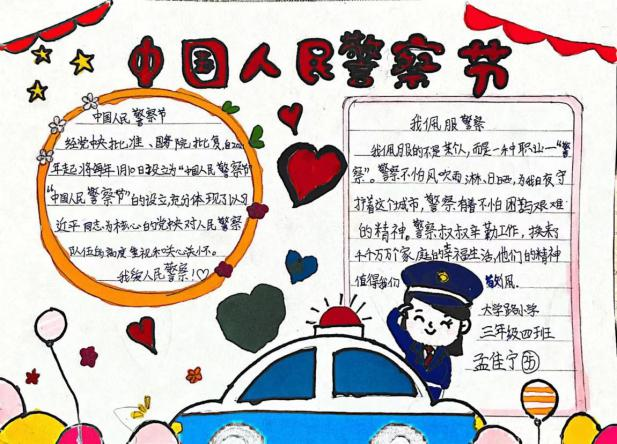 中国人民警察节
中国人民警察节
经党中央批准、国务院批复，自202
年起将每年1月10日设立为"中国人民警察节
"中国人民警察节"的设立，充分体现了以习
近平同志为核心的党中央对人民警察
队伍的高度重视和关心关怀。
我爱人民警察！♡
我佩服警察
我佩服的不是某个人，而是一种职业—"警
察"。警察不怕风吹雨淋、日晒，为我日夜守
护着这个城市，警察有着不怕困难艰难
的精神。警察叔叔辛勤工作，换来
千千万万个家庭的幸福生活，他们的精神
值得我们
大学路小学
三年级四班
孟佳宁 25